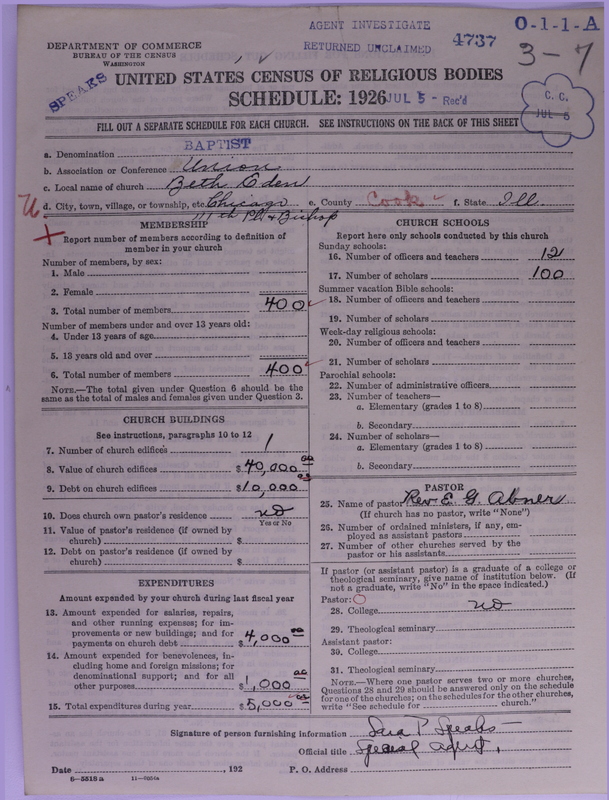 AGENT INVESTIGATE
O-1-1-A
DEPARTMENT OF COMMERCE
BUREAU OF THE CENSUS
WASHINGTON
RETURNED UNCLAIMED
4737
3-7
SPEAKS
UNITED STATES CENSUS OF RELIGIOUS BODIES
SCHEDULE: 1926
JUL 5 - Rec'd
C. C.
JUL 6
FILL OUT A SEPARATE SCHEDULE FOR EACH CHURCH. SEE INSTRUCTIONS ON THE BACK OF THIS SHEET
a. Denomination BAPTIST
b. Association or Conference Union
c. Local name of church Beth Eden
U d. City, town, village, or township, etc. Chicago e. County Cook f. State Ill
111th Pl & Bishop
MEMBERSHIP
Report number of members according to definition of
member in your church
Number of members, by sex:
1. Male
2. Female
3. Total number of members 400
Number of members under and over 13 years old:
4. Under 13 years of age
5. 13 years old and over
6. Total number of members 400
NOTE.—The total given under Question 6 should be the
same as the total of males and females given under Question 3.
CHURCH BUILDINGS
See instructions, paragraphs 10 to 12
7. Number of church edifices 1
8. Value of church edifices $40,000 00
9. Debt on church edifices $10,000 00
10. Does church own pastor's residence no
Yes or No
11. Value of pastor's residence (if owned by
church) $
12. Debt on pastor's residence (if owned by
church) $
EXPENDITURES
Amount expended by your church during last fiscal year
13. Amount expended for salaries, repairs,
and other running expenses; for im-
provements or new buildings; and for
payments on church debt $4,000 00
14. Amount expended for benevolences, in-
cluding home and foreign missions; for
denominational support; and for all
other purposes $1,000 00
15. Total expenditures during year $5,000 00
CHURCH SCHOOLS
Report here only schools conducted by this church
Sunday schools:
16. Number of officers and teachers 12
17. Number of scholars 100
Summer vacation Bible schools:
18. Number of officers and teachers
19. Number of scholars
Week-day religious schools:
20. Number of officers and teachers
21. Number of scholars
Parochial schools:
22. Number of administrative officers
23. Number of teachers—
a. Elementary (grades 1 to 8)
b. Secondary
24. Number of scholars—
a. Elementary (grades 1 to 8)
b. Secondary
PASTOR
25. Name of pastor Rev E. G. Abner
(If church has no pastor, write "None")
26. Number of ordained ministers, if any, em-
ployed as assistant pastors
27. Number of other churches served by the
pastor or his assistants
If pastor (or assistant pastor) is a graduate of a college or
theological seminary, give name of institution below. (If
not a graduate, write "No" in the space indicated.)
Pastor:
28. College no
29. Theological seminary
Assistant pastor:
30. College
31. Theological seminary
NOTE.—Where one pastor serves two or more churches,
Questions 28 and 29 should be answered only on the schedule
for one of the churches; on the schedules for the other churches,
write "See schedule for church."
Signature of person furnishing information Sara P Speaks
Official title Special agent,
Date , 192 P. O. Address
6-5518 a